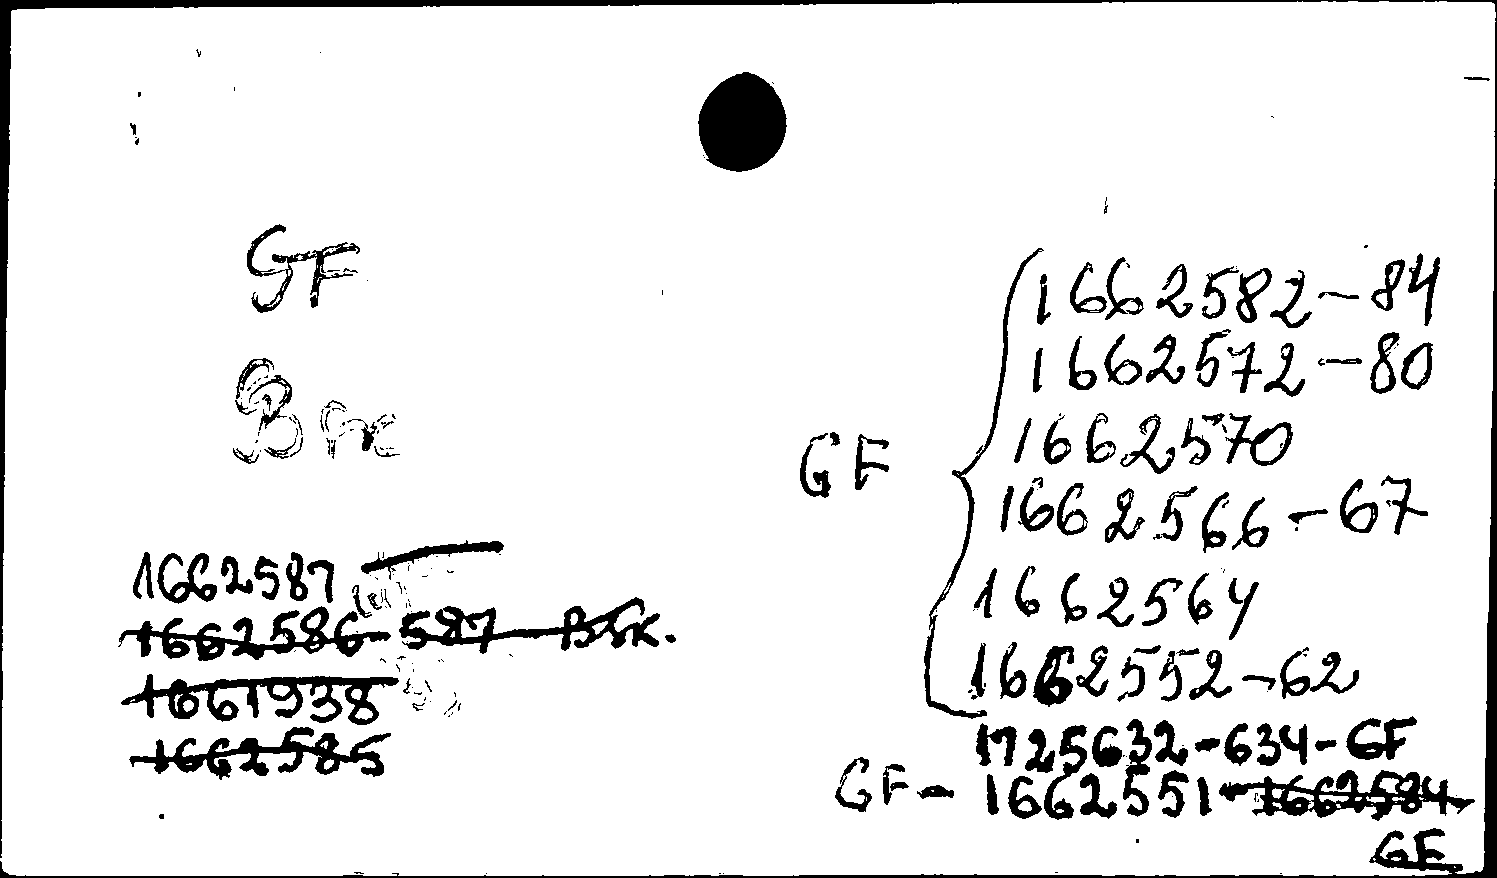 GF
1662587
1662586-587-BSK.
1661938
1662585
GF
1662582-84
1662572-80
1662570
1662566-67
1662564
1662552-62
1725632-634-GF
GF-1662551-1662584
GF